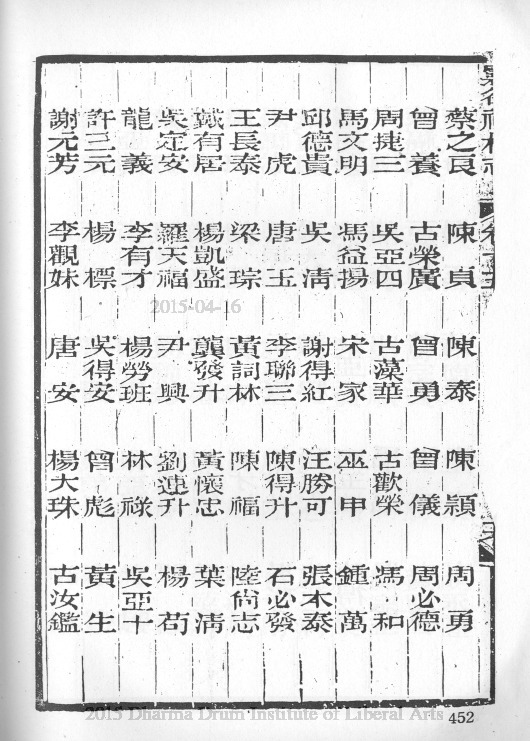 蔡之良 陳貞 陳泰 陳顯 周勇
曾養 古榮廣 曾勇 曾儀 周必德
周捷三 吳亞四 古藻華 古歡榮 馮和
馬文明 馮益揚 宋家 巫申 鍾萬
邱德貴 吳清 謝得紅 汪勝可 張本泰
尹虎 唐玉 李聯三 陳得升 石必發
王長泰 梁琮 黃詞林 陳福 陸尚志
戴有居 楊凱盛 龔發升 黃懷忠 葉清
吳定安 羅天福 尹興 劉連升 楊苟
龍義 李有才 楊勞班 林祿 吳亞十
許三元 楊標 吳得安 曾彪 黃生
謝元芳 李觀妹 唐安 楊大珠 古汝鑑
2015-04-16
2015 Dharma Drum Institute of Liberal Arts
452